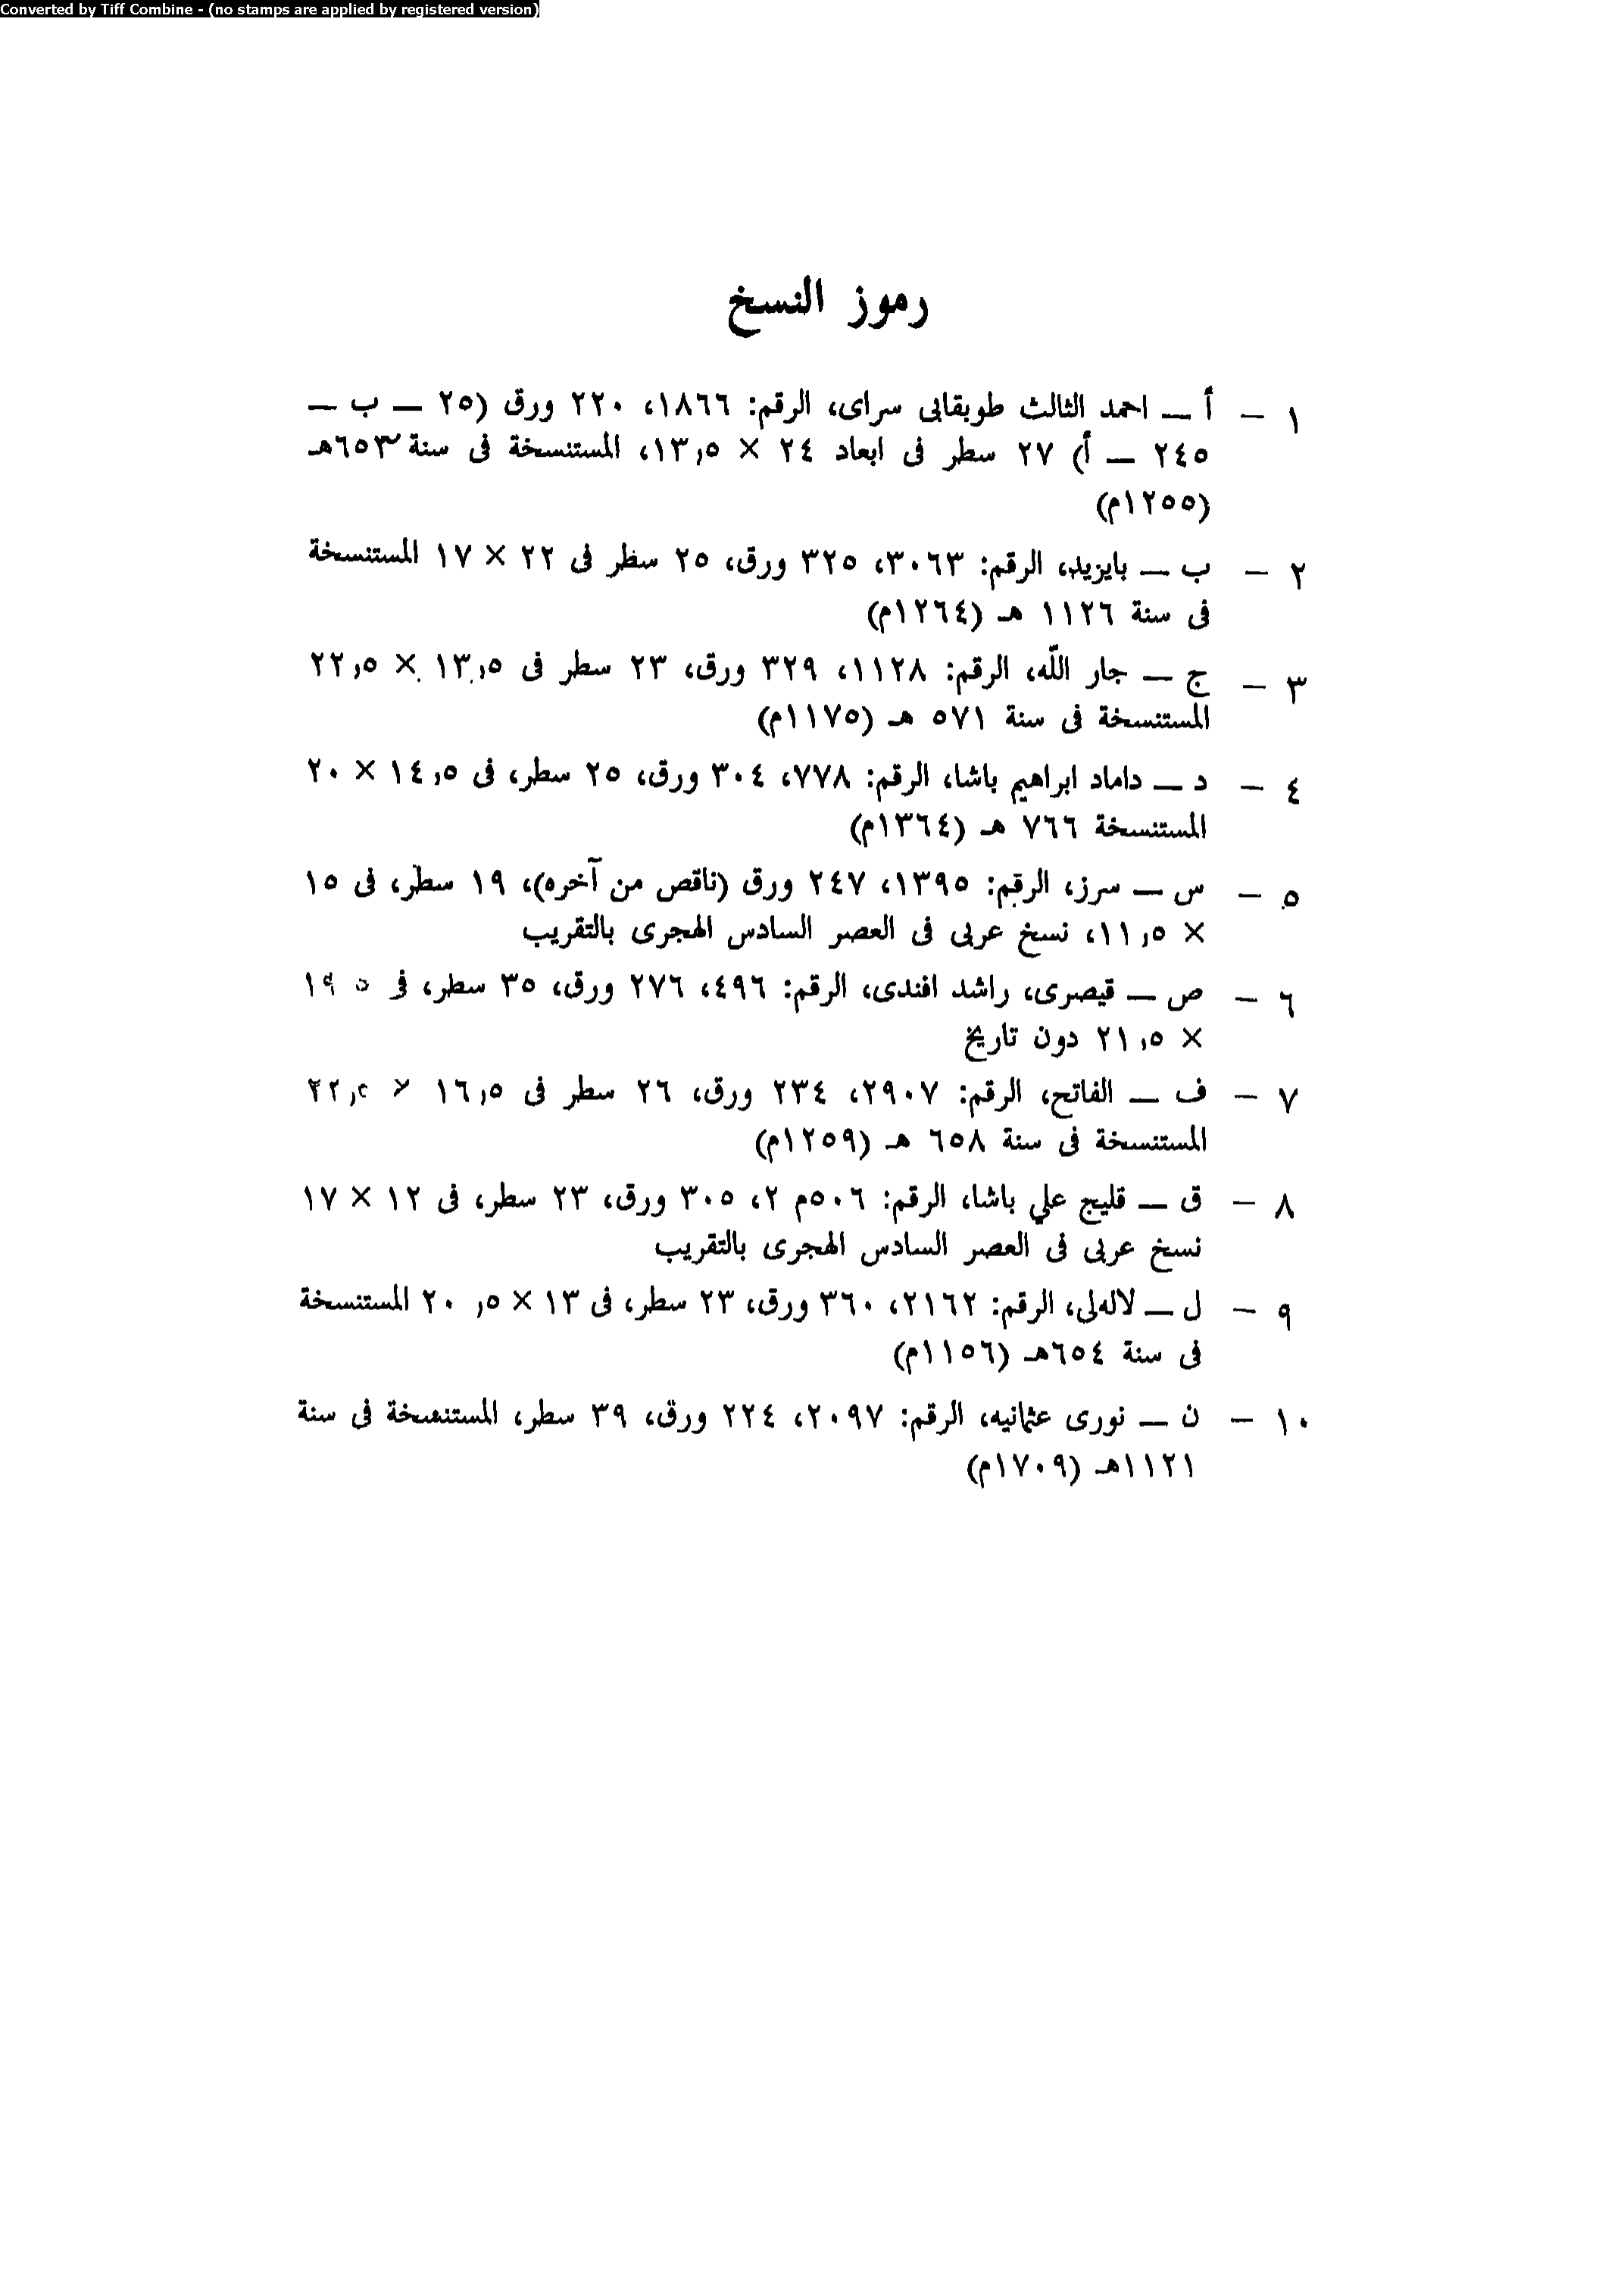 Converted by Tiff Combine - (no stamps are applied by registered version)
رموز النسخ
١ — أ — احمد الثالث طوبقابى سراى، الرقم: ١٨٦٦، ٢٢٠ ورق (٢٥ — ب —
٢٤٥ — أ) ٢٧ سطر فى ابعاد ٢٤ × ١٣٫٥، المستنسخة فى سنة ٦٥٣هـ
(١٢٥٥م)
٢ — ب — بايزيد، الرقم: ٣٠٦٣، ٣٢٥ ورق، ٢٥ سطر فى ٢٢ × ١٧ المستنسخة
فى سنة ١١٢٦ هـ (١٢٦٤م)
٣ — ج — جار اللّه، الرقم: ١١٢٨، ٣٢٩ ورق، ٢٣ سطر فى ١٣٫٥ × ٢٢٫٥
المستنسخة فى سنة ٥٧١ هـ (١١٧٥م)
٤ — د — داماد ابراهيم باشا، الرقم: ٧٧٨، ٣٠٤ ورق، ٢٥ سطر، فى ١٤٫٥ × ٢٠
المستنسخة ٧٦٦ هـ (١٣٦٤م)
٥ — س — سرز، الرقم: ١٣٩٥، ٢٤٧ ورق (ناقص من آخره)، ١٩ سطر، فى ١٥
× ١١٫٥، نسخ عربى فى العصر السادس الهجرى بالتقريب
٦ — ص — قيصرى، راشد افندى، الرقم: ٤٩٦، ٢٧٦ ورق، ٣٥ سطر، فى
× ٢١٫٥ دون تاريخ
٧ — ف — الفاتح، الرقم: ٢٩٠٧، ٢٣٤ ورق، ٢٦ سطر فى ١٦٫٥ × ٢٢٫٥
المستنسخة فى سنة ٦٥٨ هـ (١٢٥٩م)
٨ — ق — قليج علي باشا، الرقم: ٥٠٦م ٢، ٣٠٥ ورق، ٢٣ سطر، فى ١٢ × ١٧
نسخ عربى فى العصر السادس الهجرى بالتقريب
٩ — ل — لالەلى، الرقم: ٢١٦٢، ٣٦٠ ورق، ٢٣ سطر، فى ١٣ × ٢٠٫٥ المستنسخة
فى سنة ٦٥٤هـ (١١٥٦م)
١٠ — ن — نورى عثمانيه، الرقم: ٢٠٩٧، ٢٢٤ ورق، ٣٩ سطر، المستنسخة فى سنة
١١٢١هـ (١٧٠٩م)